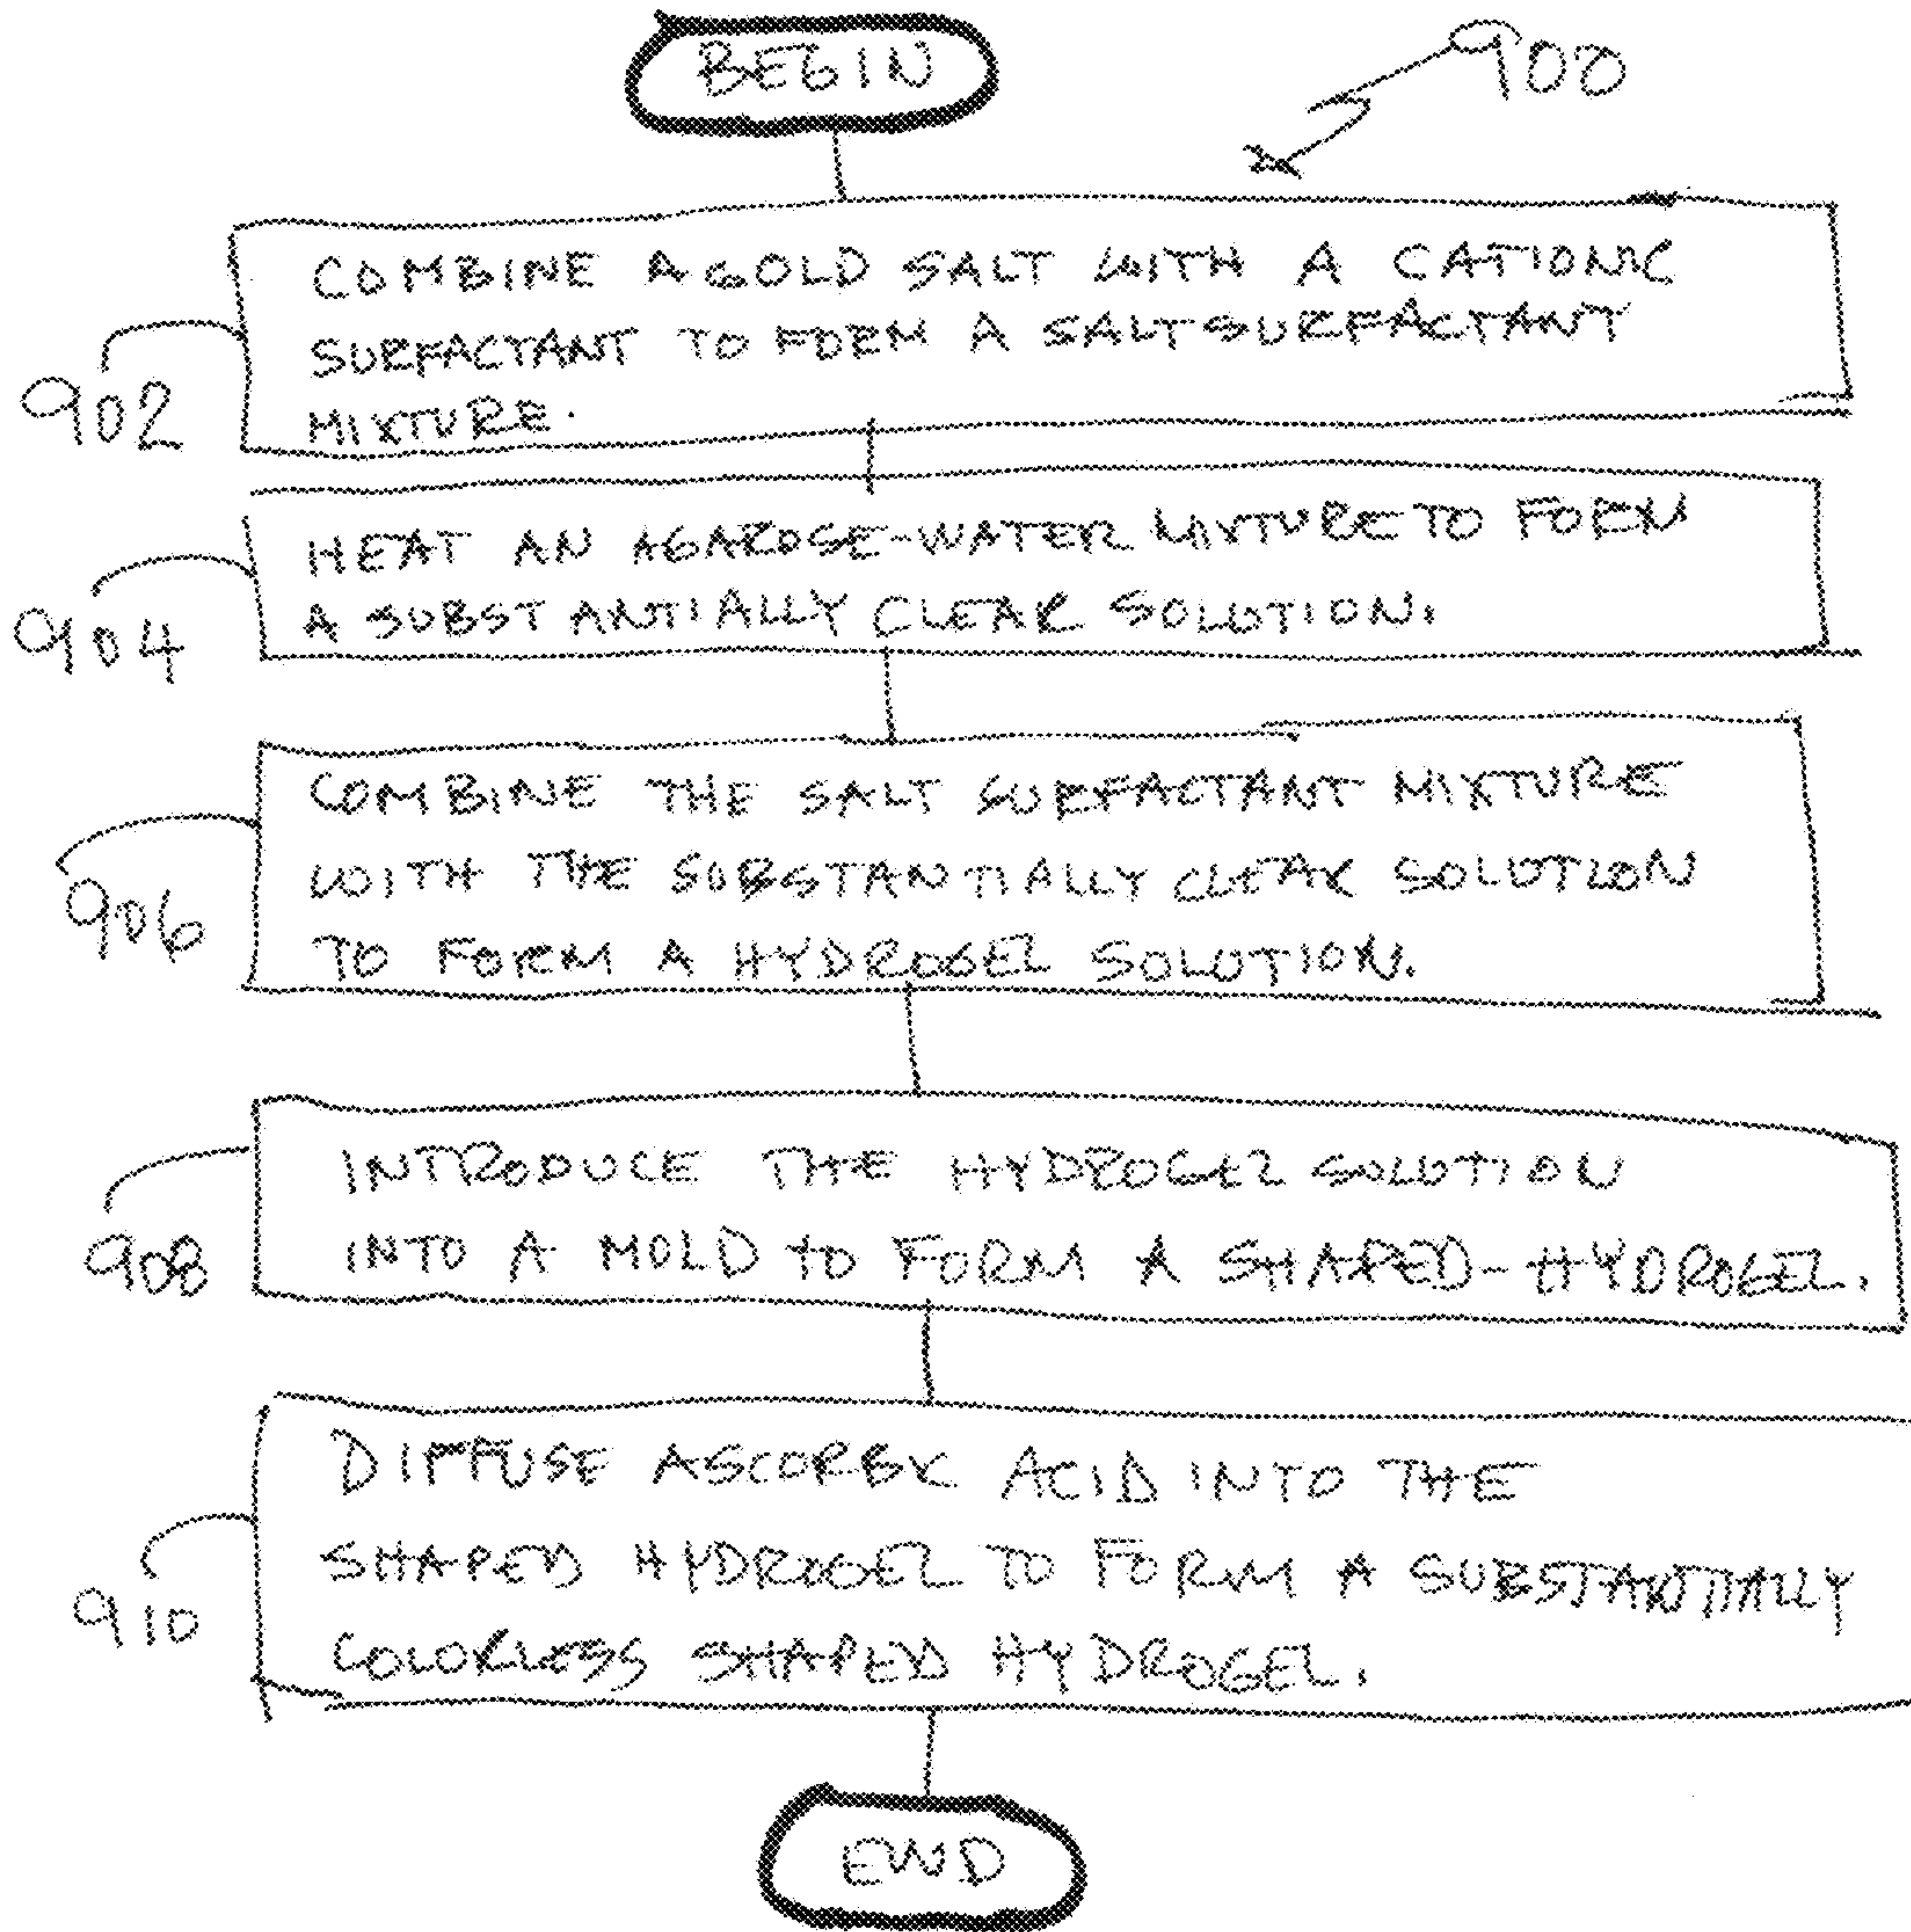 BEGIN
900
COMBINE A GOLD SALT WITH A CATIONIC
SURFACTANT TO FORM A SALT SURFACTANT
MIXTURE.
902
HEAT AN AGAROSE-WATER MIXTURE TO FORM
A SUBSTANTIALLY CLEAR SOLUTION.
904
COMBINE THE SALT SURFACTANT MIXTURE
WITH THE SUBSTANTIALLY CLEAR SOLUTION
TO FORM A HYDROGEL SOLUTION.
906
INTRODUCE THE HYDROGEL SOLUTION
INTO A MOLD TO FORM A SHAPED-HYDROGEL.
908
DIFFUSE ASCORBIC ACID INTO THE
SHAPED HYDROGEL TO FORM A SUBSTANTIALLY
COLORLESS SHAPED HYDROGEL.
910
END